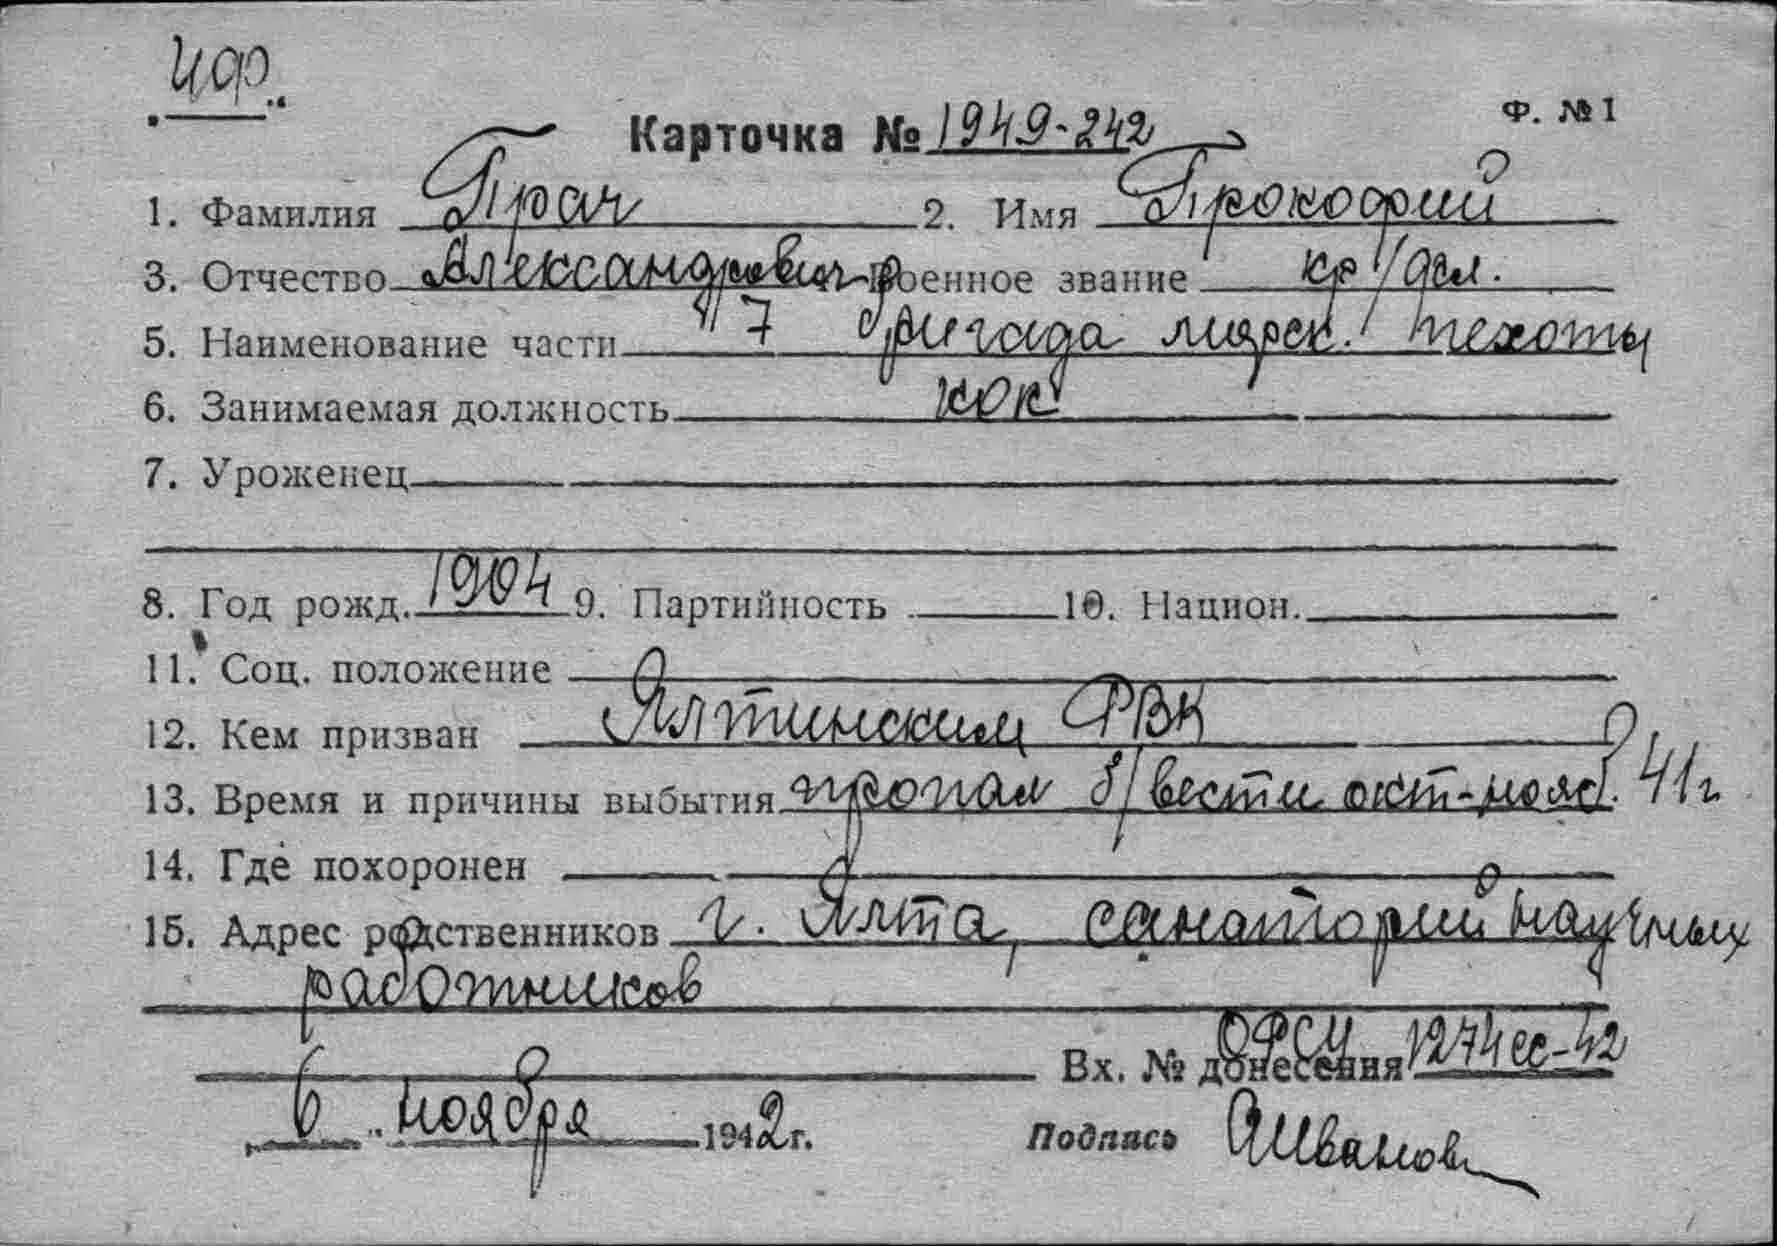 ЧФ.
Карточка № 1949-242 Ф. №1
1. Фамилия Прач 2. Имя Прокофий
3. Отчество Александрович Военное звание кр/фл.
5. Наименование части 7 бригада морск. пехоты
6. Занимаемая должность
7. Уроженец
8. Год рожд. 1904 9. Партийность 10. Национ.
11. Соц. положение
12. Кем призван Ялтинским РВК
13. Время и причины выбытия пропал б/вести окт-нояб. 41 г
14. Где похоронен
15. Адрес родственников г. Ялта, санаторий научных
работников
Вх. № донесения 1274сс-42
6 ноября 1942 г. Подпись АИванов